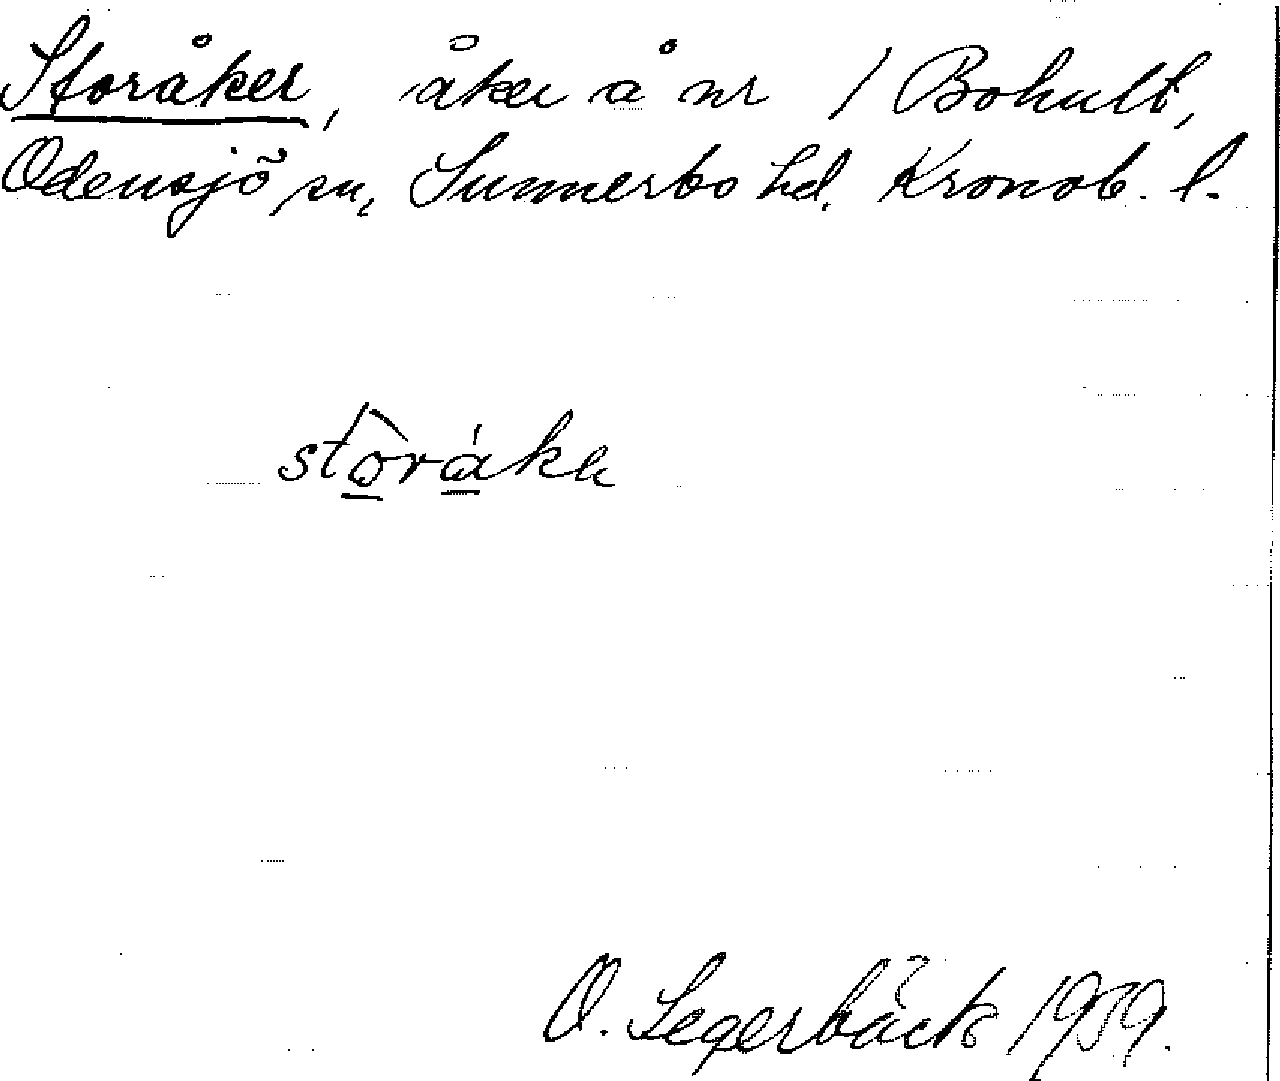 Storåker, åker å nr 1 Bohult,
Odensjö sn, Sunnerbo hd. Kronob. l.
storåker
O. Segerbäck 1959.